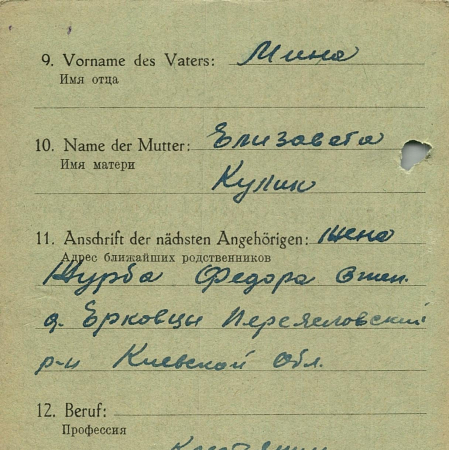 9. Vorname des Vaters: Мина
Имя отца
10. Name der Mutter: Елизавета
Имя матери
Кулик
11. Anschrift der nächsten Angehörigen: жена
Адрес ближайших родственников
Журба Федора
д. Ерковцы Переяславский
р-н Киевской обл.
12. Beruf:
Профессия